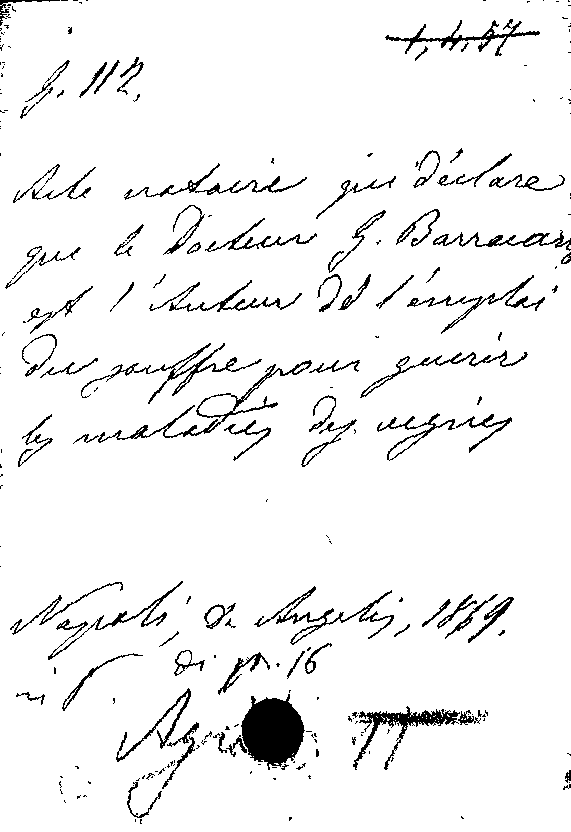 1, 4, 57
G. 112.
Acte notaire qui déclare
que le Docteur G. Barracano
est l'Auteur dé l'émploi
du souffre pour guérir
les maladiés des vignes
Napoli, De Angelis, 1869.
in 8. di pp. 16